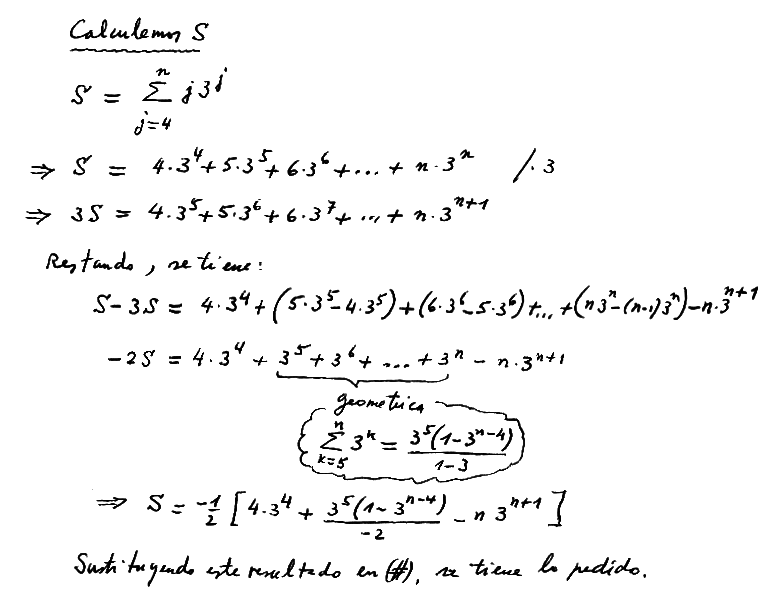 Calculemos S
S = \sum_{j=4}^{n} j 3^j
⇒ S = 4·3^4 + 5·3^5 + 6·3^6 + ... + n·3^n /·3
⇒ 3S = 4·3^5 + 5·3^6 + 6·3^7 + ... + n·3^{n+1}
Restando, se tiene:
S-3S = 4·3^4 + (5·3^5 - 4·3^5) + (6·3^6 - 5·3^6) + ... + (n3^n - (n-1)3^n) - n·3^{n+1}
-2S = 4·3^4 + 3^5 + 3^6 + ... + 3^n - n·3^{n+1}
geometrica
\sum_{k=5}^{n} 3^k = \frac{3^5(1-3^{n-4})}{1-3}
⇒ S = \frac{-1}{2} [4·3^4 + \frac{3^5(1-3^{n-4})}{-2} - n 3^{n+1}]
Sustituyendo este resultado en (#), se tiene lo pedido.